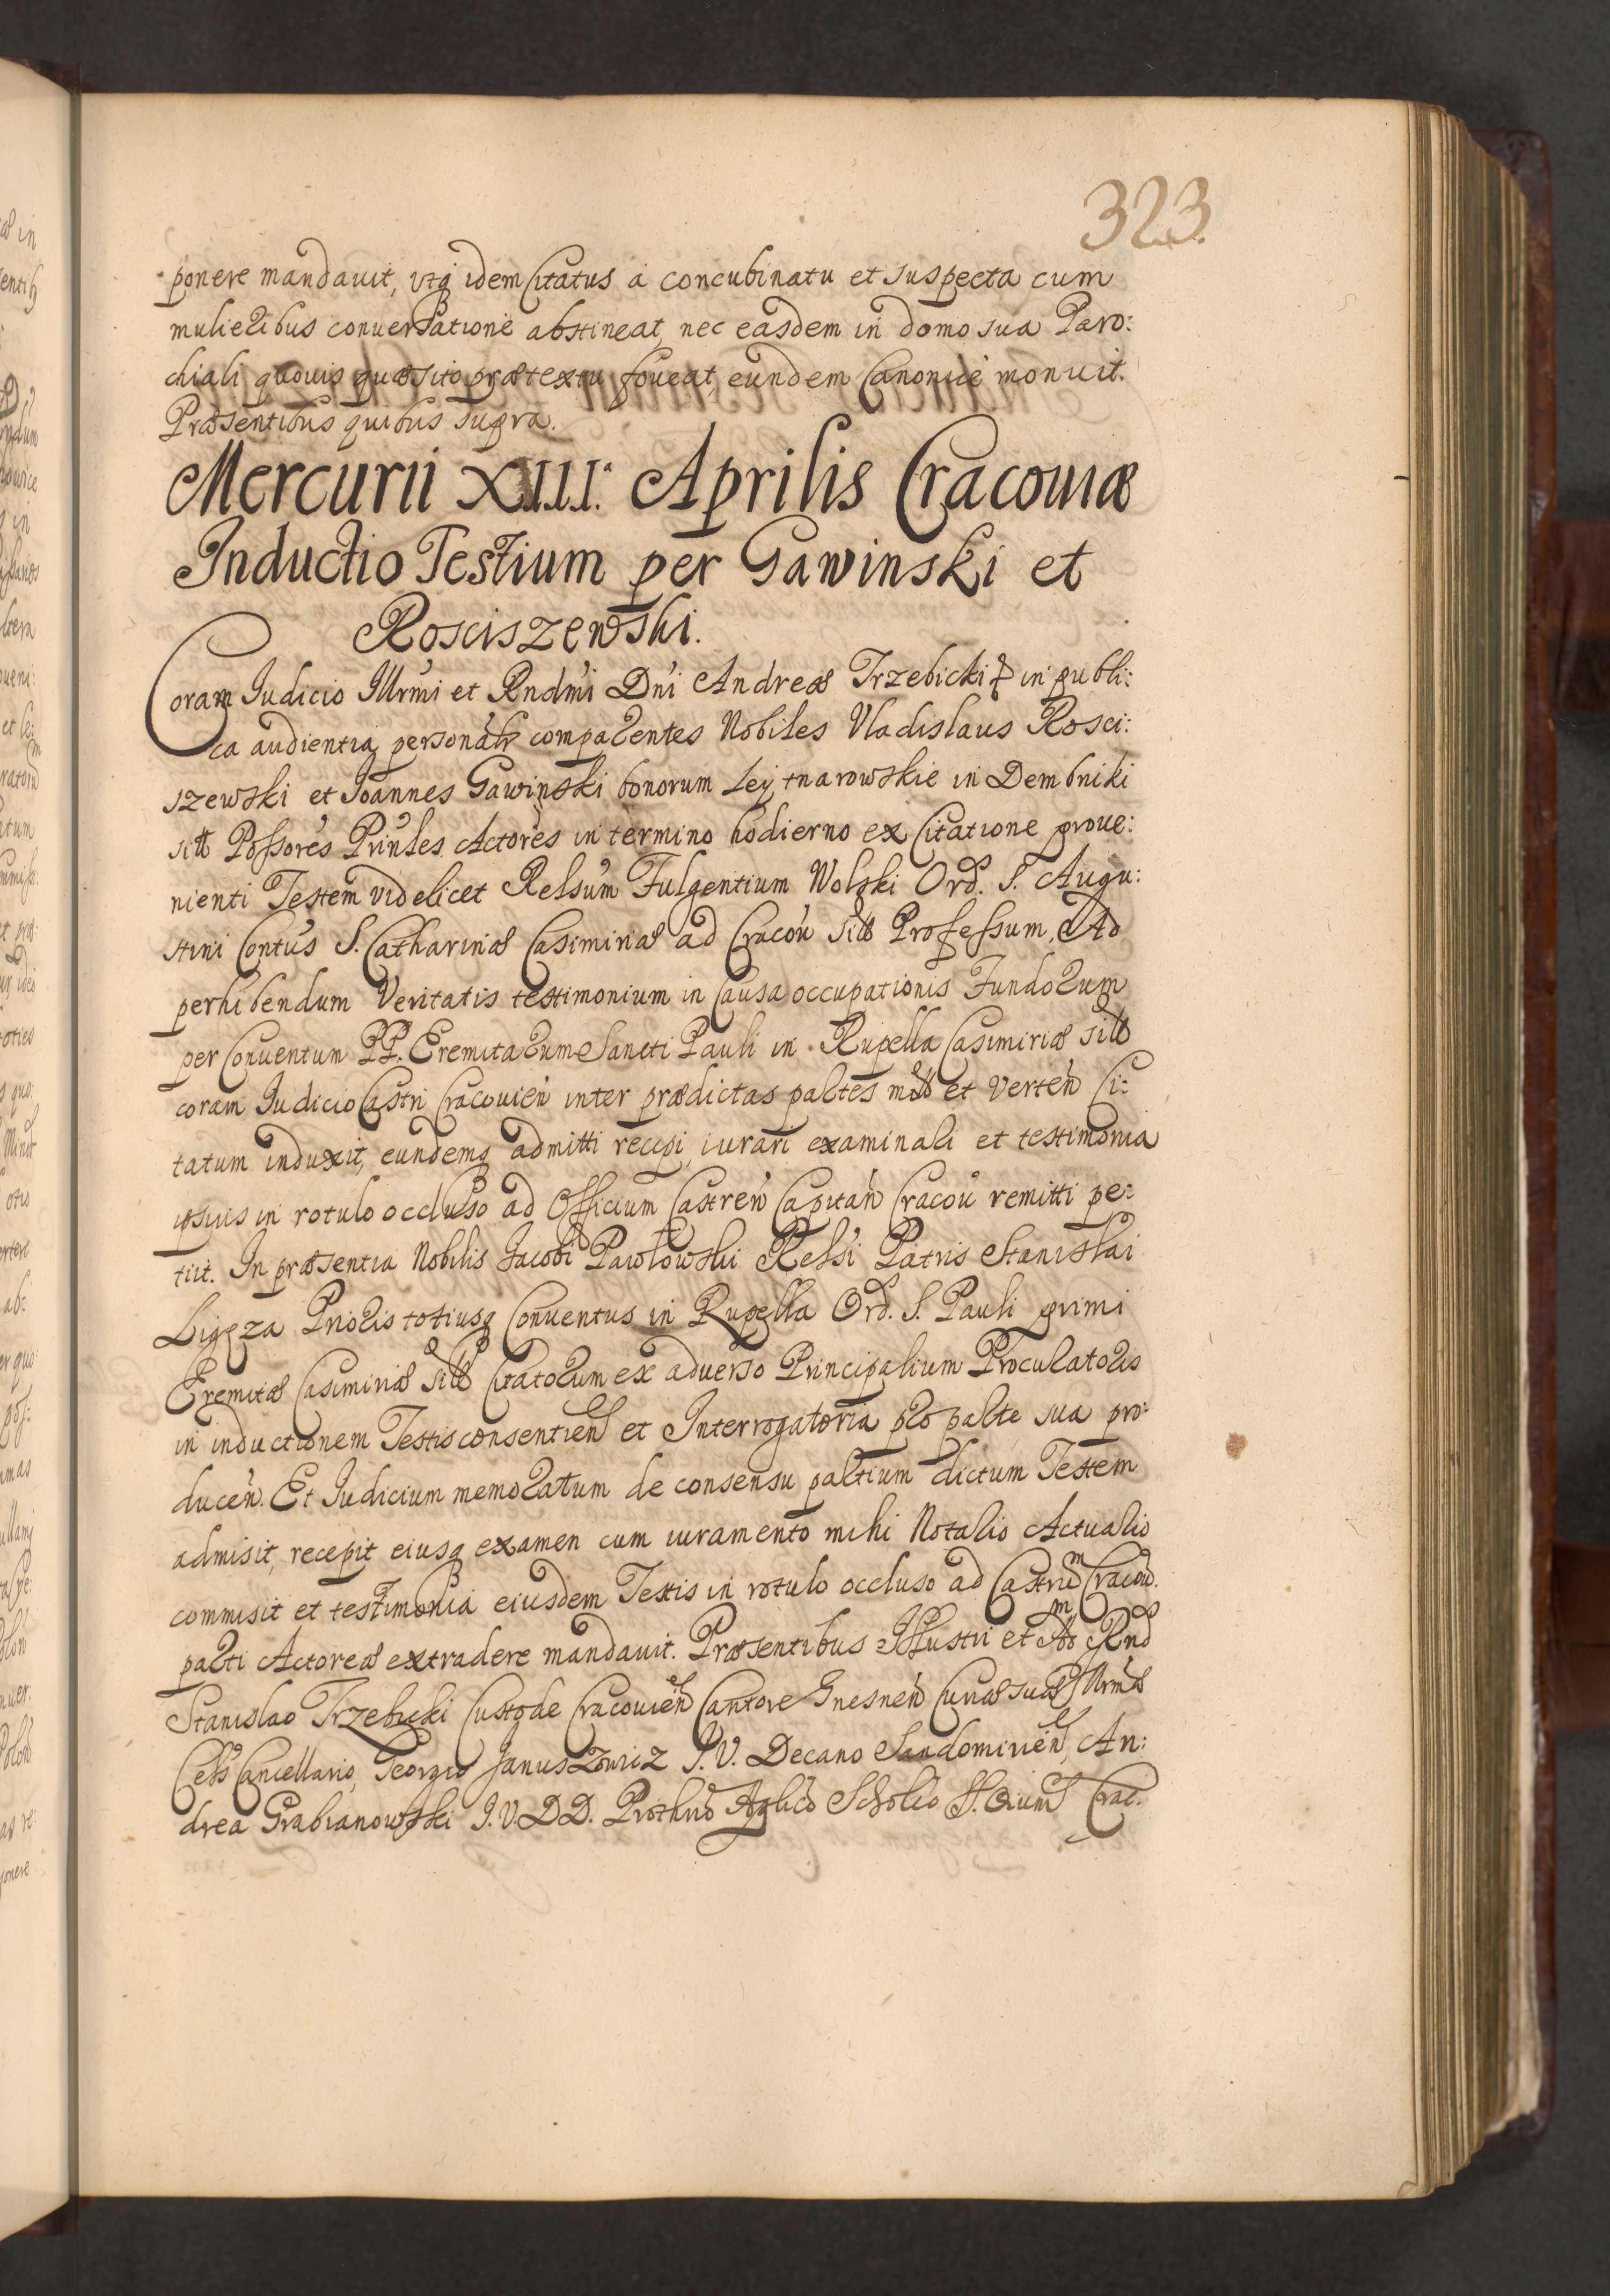 323.
ponere mandauit, vtq idem Citatus à concubinatu et suspecta cum
mulieribus conuersatione abstineat, nec easdem in domo sua Paro:
chiali quouis quæsito prætextu foueat, eundem Canonicè monuit.
Præsentibus quibus supra.
Mercurii XIII. Aprilis Cracouiæ
Inductio Testium per Gawinski et
Rosciszewski.
Coram Iudicio Illrmi et Rndmi Dni Andreæ Trzebicki in publi:
ca audientia personalr comparentes Nobiles Vladislaus Rosci:
szewski et Joannes Gawinski bonorum Leytnarowskie in Dembniki
sitt Possores Prinles Actores in termino hodierno ex Citatione proue:
nienti Testem videlicet Relsum Fulgentium Wolski Ord. S. Augu:
stini Contus S. Catharinæ Casimiriæ ad Cracou sitt Professum, Ad
perhibendum Veritatis testimonium in Causa occupationis Fundorum
per Conuentum PP. Eremitarum Sancti Pauli in Rupella Casimiriæ sitt
coram Iudicio Castri Cracouien inter prædictas partes mot et verten Ci:
tatum induxit, eundemq admitti recipi, iurari examinari et testimonia
ipsius in rotulo occluso ad Officium Castren Capitan Cracou remitti pe:
tiit. In præsentia Nobilis Jacobi Pawlowski Relsi Patris Stanislai
Ligęza Prioris totiusq Conuentus in Rupella Ord. S. Pauli primi
Eremitæ Casimiriæ sitt Citatorum ex aduerso Principalium Procuratoris
in inductionem Testis consentien et Interrogatoria pro parte sua pro:
ducen. Et Iudicium memoratum de consensu partium dictum Testem
admisit, recepit eiusq examen cum iuramento mihi Notario Actuario
commisit et testimonia eiusdem Testis in rotulo occluso ad Castrum Cracou.
parti Actoreæ extradere mandauit. Præsentibus Illustri et Adm Rnd
Stanislao Trzebicki Custode Cracouien Cantore Gnesnen Curiæ suæ Illrmæ
Cels Cancellario, Georgio Januszowicz S. V. Decano Sandomirien, An:
drea Grabianowski I. V. DD. Prothrio Aplico Scholio Crac.